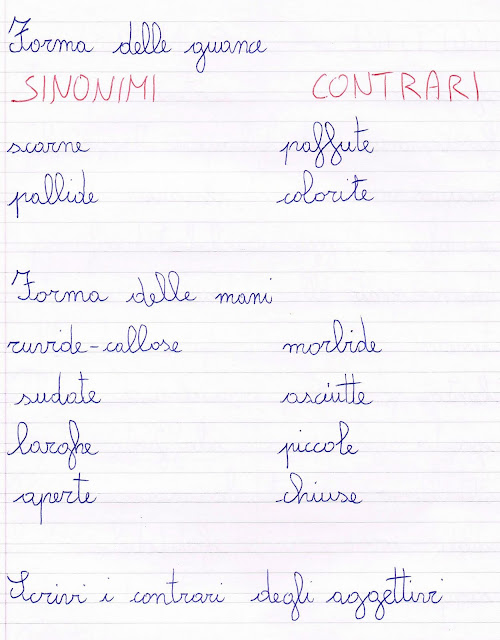 Forma delle guance
SINONIMI CONTRARI
scarne paffute
pallide colorite
Forma delle mani
ruvide-callose morbide
sudate asciutte
larghe piccole
aperte chiuse
Scrivi i contrari degli aggettivi